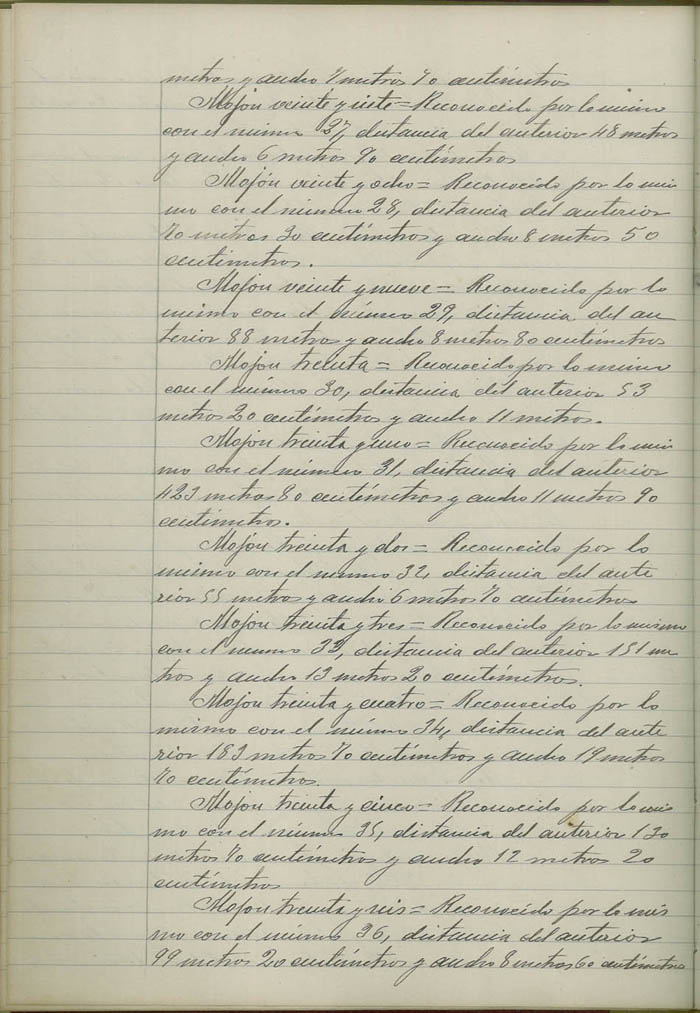 metros y ancho 7 metros 70 centímetros
Mojon veinte y siete = Reconocido por lo mismo
con el número 27, distancia del anterior 48 metros
y ancho 6 metros 90 centímetros
Mojón veinte y ocho = Reconocido por lo mis
mo con el número 28, distancia del anterior
70 metros 30 centímetros y ancho 8 metros 50
centimetros.
Mojon veinte y nueve = Reconocido por lo
mismo con el número 29, distancia del an
terior 88 metros y ancho 8 metros 80 centímetros
Mojon treinta = Reconocido por lo mismo
con el número 30, distancia del anterior 53
metros 20 centímetros y ancho 11 metros.
Mojon treinta y uno = Reconocido por lo mis
mo con el número 31, distancia del anterior
423 metros 80 centímetros y ancho 11 metros 90
centímetros.
Mojon treinta y dos = Reconocido por lo
mismo con el número 32, distancia del ante
rior 55 metros y ancho 6 metros 70 centímetros
Mojon treinta y tres = Reconocido por lo mismo
con el número 33, distancia del anterior 151 me
tros y ancho 13 metros 20 centímetros.
Mojon treinta y cuatro = Reconocido por lo
mismo con el número 34, distancia del ante
rior 183 metros 70 centímetros y ancho 19 metros
70 centímetros.
Mojon treinta y cinco = Reconocido por lo mis
mo con el número 35, distancia del anterior 130
metros 70 centímetros y ancho 12 metros 20
centímetros
Mojon treinta y seis = Reconocido por lo mis
mo con el número 36, distancia del anterior
99 metros 20 centímetros y ancho 8 metros 60 centímetros